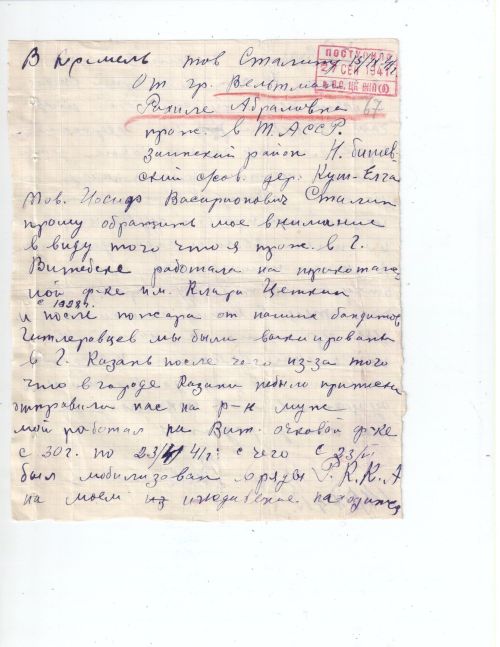 В Кремль тов Сталину 15/IX 41г.
ПОСТУПИЛО
27 СЕН 1941
От гр. Вельтман
Рахиле Абрамовна 67
прож. в Т.АССР.
Заинский район Н. Бишев-
ский с/сов. дер. Куш-Елга
Тов. Иосиф Васарионович Сталин
прошу обратить мое внимание
в виду того что я прож. в г.
Витебске работала на трикотаж-
ной ф-ке им. Клара Цеткин
с 1928г.
и после пожара от наших бандитов
гитлеровцев мы были вакиированы
в г. Казань после чего из-за того
что в городе Казани небыло приписки
отправили нас на р-н муж
мой работал на Вит. очковой ф-ке
с 30г. по 23/ 41г: с чего с 23/
был мобилизован в ряды Р.К.К.А
на моем из иждивение находится